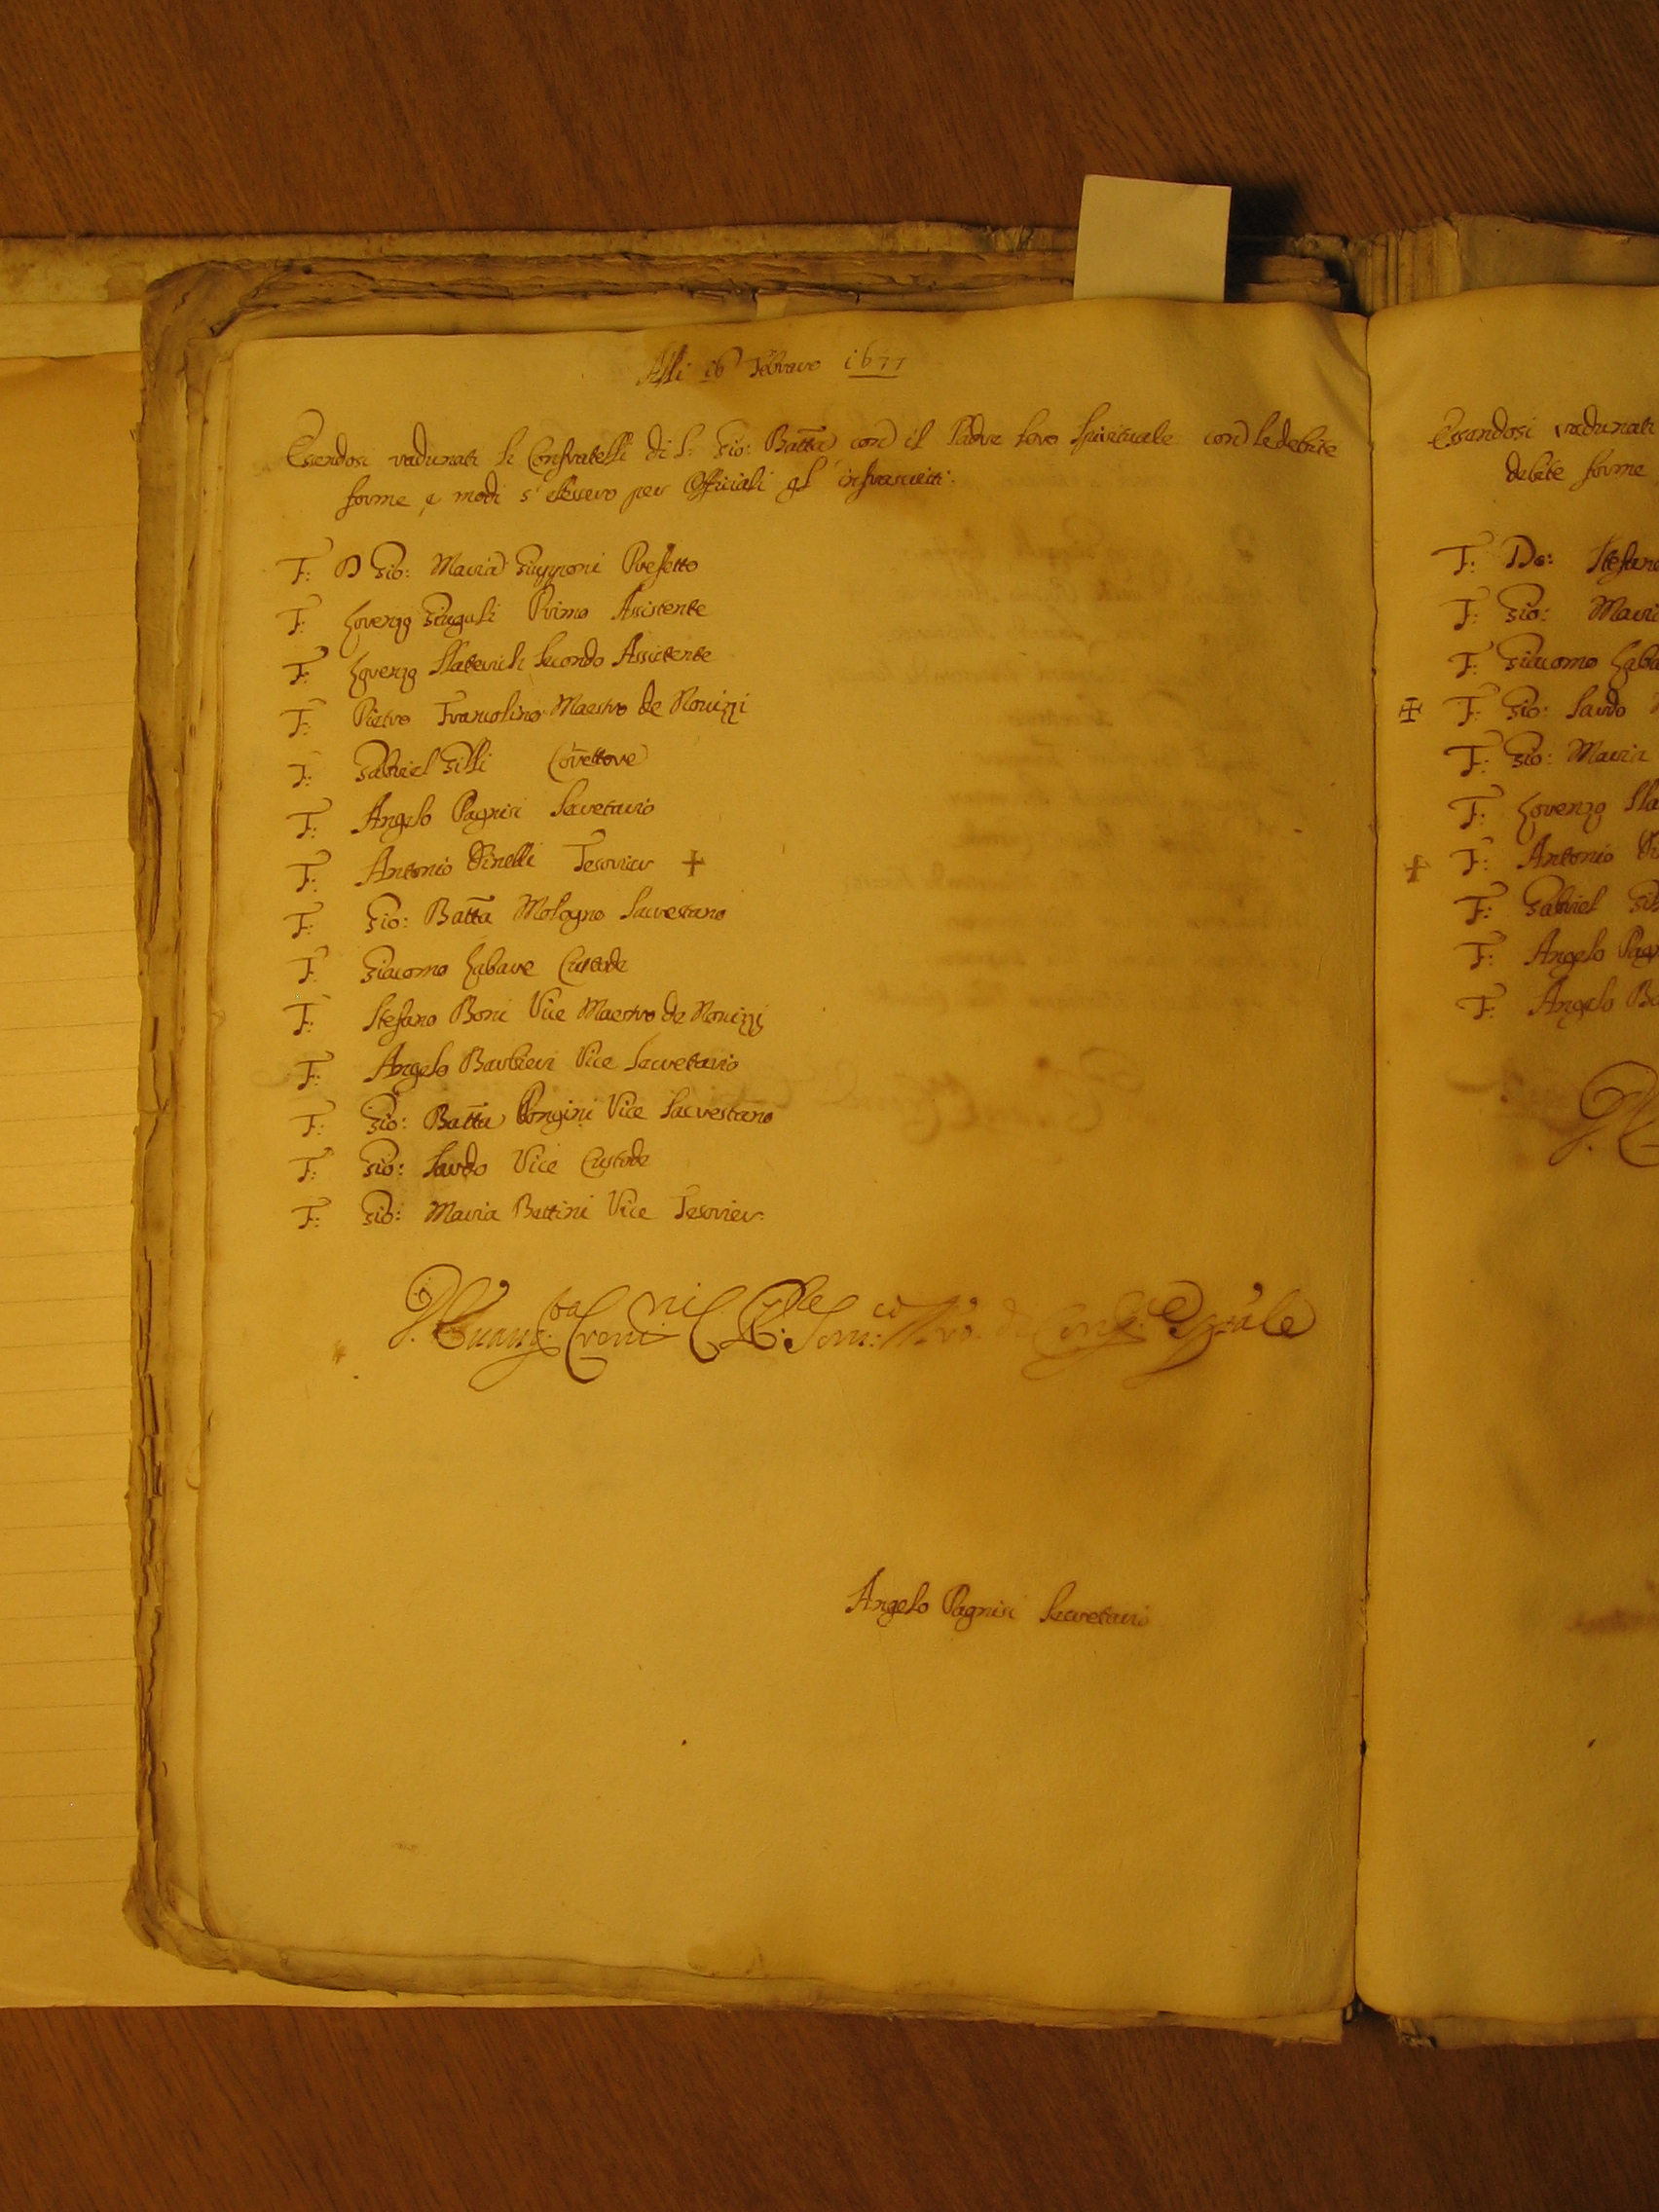 Alli 16 Febraro 1677
Essendosi radunati li Confratelli di S: Gio: Batta con il Padre loro Spirituale con le debite
forme, e modi s'elessero per Officiali gl' infrascritti:
F: D Gio: Maria Gupponi Prefetto
F: Lorenzo Primo Assistente
F: Lorenzo Slatevich Secondo Assistente
F: Pietro Francolino Maestro de Novizzi
F: Gabriel Gilli Corettore
F: Angelo Pagnisi Secretario
F: Antonio Tesorier +
F: Gio: Batta Mologno Sacrestano
F: Giacomo Labare Custode
F: Stefano Boni Vice Maestro de Novizzi
F: Angelo Barbieri Vice Secretario
F: Gio: Batta Vice Sacrestano
F: Gio: Sardo Vice Custode
F: Gio: Maria Bettini Vice Tesorier:
Angelo Pagnisi Secretario
Essendosi radunati
debite forme
F: Do: Stefano
F: Gio: Maria
F: Giacomo
F: Gio: Sardo
F: Gio: Maria
F: Lorenzo
F: Antonio
F: Gabriel
F: Angelo
F: Angelo